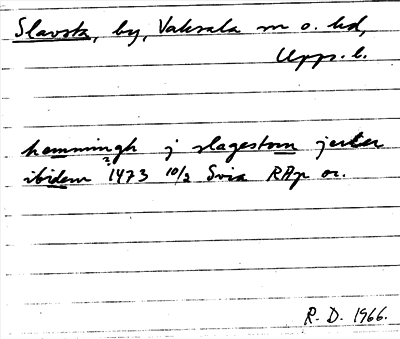 Slavsta, by, Vaksala sn o. hd,
Upps. l.
hemmingh j slagestom
ibidem 1473 10/2 Svia RAp or.
R. D. 1966.